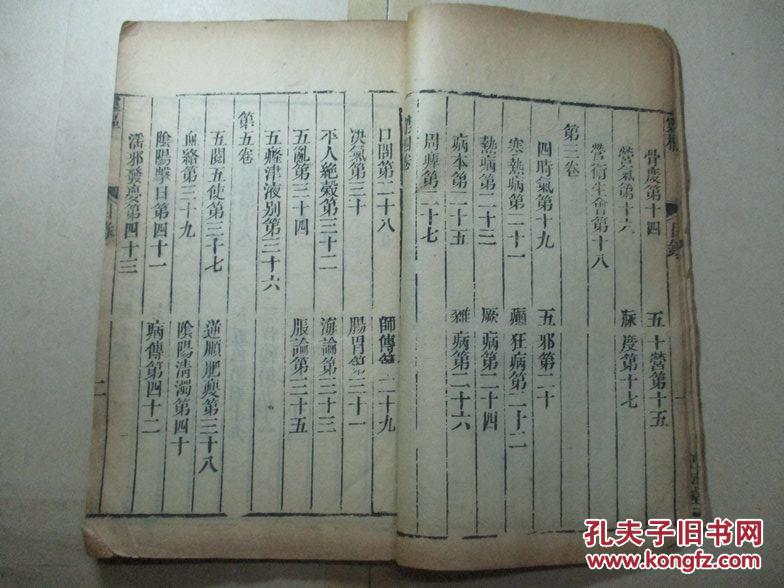 骨度第十四　五十營第十五
營氣第十六　脈度第十七
營衛生會第十八
第三卷
四時氣第十九　五邪第二十
寒熱病第二十一　癲狂病第二十二
熱病第二十三　厥病第二十四
病本第二十五　雜病第二十六
周痺第二十七
口問第二十八　師傳第二十九
決氣第三十　腸胃第三十一
平人絶榖第三十二　海論第三十三
五亂第三十四　脹論第三十五
五癃津液别第三十六
第五卷
五閱五使第三十七　逆順肥瘦第三十八
血絡第三十九　陰陽清濁第四十
陰陽擊日第四十一　病傳第四十二
淫邪發夢第四十三
二
孔夫子旧书网
www.kongfz.com